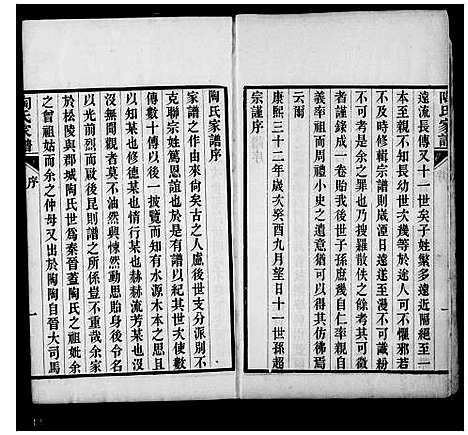 遠流長傳又十一世矣子姓繁多遠近隔絕至一
本至親不知長幼世次幾等於途人可不懼邪若
不及時修輯宗譜則歲湮日遠遂至漫不可識粉
不可考是余之罪也乃搜羅散佚之餘考其可據
者謹錄成一卷貽我後世子孫庶幾自仁率親自
義率祖而周禮小史之遺意猶可以彷彿焉
云爾
康熙三十二年歲次癸酉九月望日十一世孫超
宗謹序
陶氏家譜序
家譜之作由來尚矣古之人慮後世支分派別不
克聯宗姓篤恩誼也於是有譜以紀其世次使數
傳數十傳以後一披覽而知有水源木本之思且
以知某也修德某也情某也赫赫流芳某也沒
沒無聞觀者莫不油然興悚然動思貽身後令名
以光前烈而啟後昆則譜之所係豈不重哉余家
於松陵與郡城陶氏世爲秦晉蓋陶氏之祖妣余
之曾祖姑而余之仲母又出於陶陶自晉大司馬
陶氏家譜
序
一